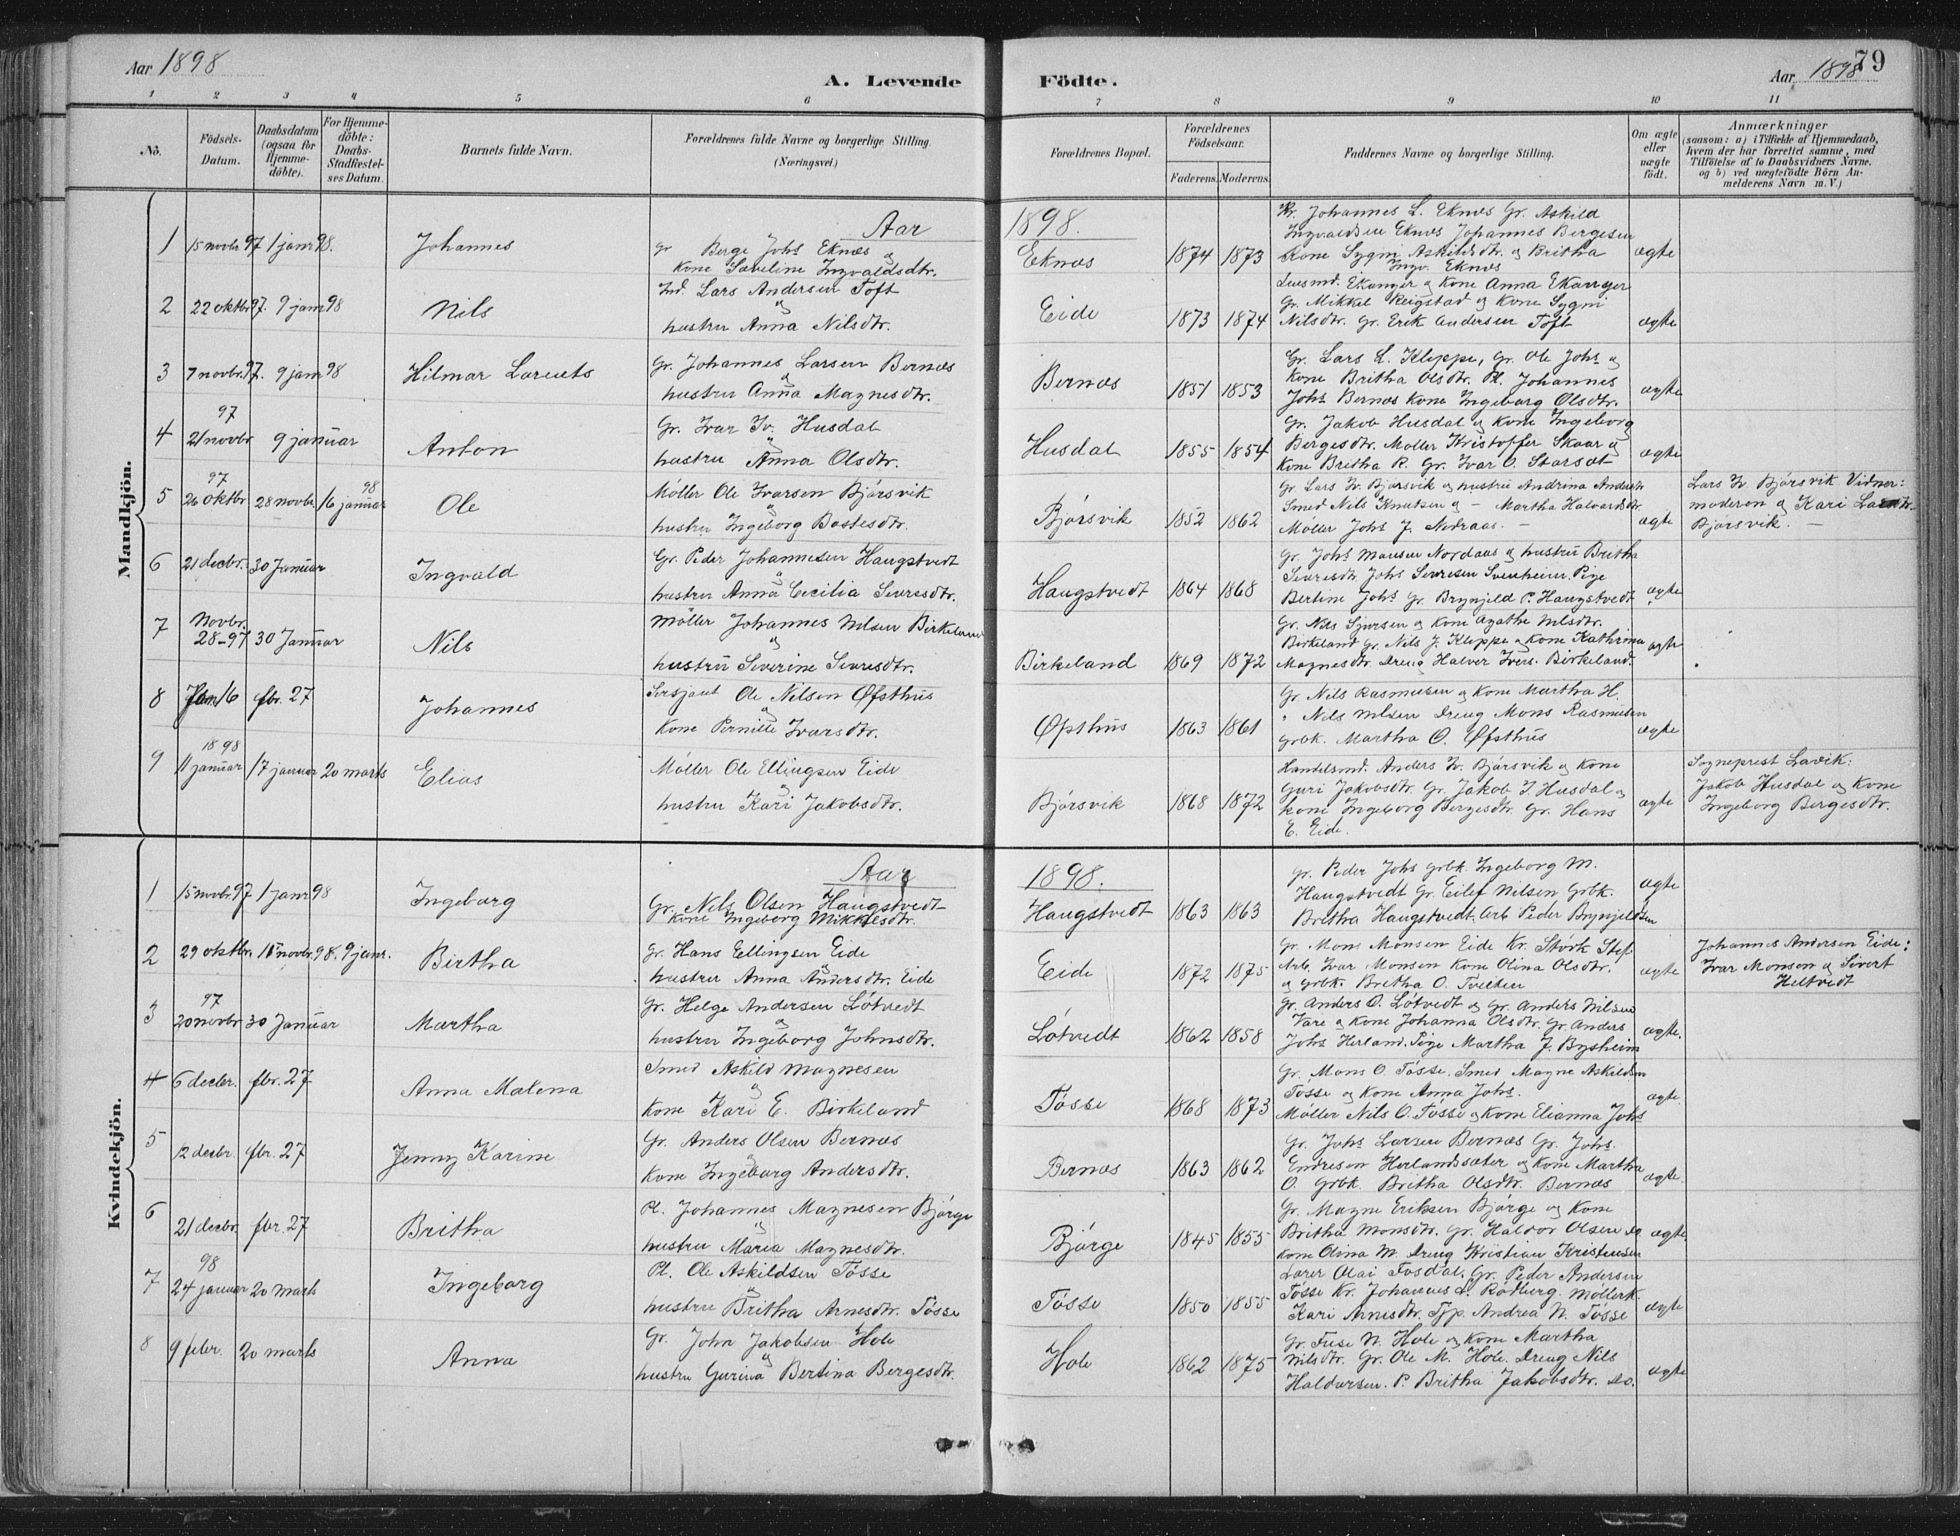 Aar 1898
A. Levende
Födte.
Aar 1898
79
1 2 3 4 5 6 7 8 9 10 11
No.
Födsels-Datum.
Daabsdatum (ogsaa for Hjemme-döbte).
For Hjemme-döbte: Daabs-Stadfæstel-ses Datum.
Barnets fulde Navn.
Forældrenes fulde Navne og borgerlige Stilling (Næringsvei).
Forældrenes Bopæl.
Forældrenes Födselsaar.
Faderens. Moderens.
Faddernes Navne og borgerlige Stilling.
Om ægte eller uægte födt.
Anmærkninger
(saasom: a) i Tilfælde af Hjemmedaab, hvem der har forrettet samme, med Tilföielse af to Daabsvidners Navne, og b) ved uægtefödte Börn An-melderens Navn m. V.)
Mandkjön.
Aar 1898.
1 15 novbr 97 1 janr 98. Johannes
Gr Berge Johs Eknæs og
Kone Saveline Ingvaldsdtr.
Eknæs 1874 1873
Kr. Johannes L. Eknæs Gr. Askild
Ingvaldsen Eknæs Johannes Bergesen
Kone Sygni Askildsdtr. og Britha
Ingv. Eknæs
ægte
2 22 oktbr 97. 9 janr 98 Nils
Ind. Lars Andersen Toft
og
hustru Anna Nilsdtr.
Eide 1873 1874
Ekanger og Kone Anna Ekanger
Gr. Mikkel Reigstad og Kone Sygni
Nilsdtr. Gr. Erik Andersen Toft
ægte
3 7 novbr. 97. 9 janr 98 Hilmar Laruets
Gr. Johannes Larsen Bernæs
og
hustru Anna Magnesdtr.
Bernæs 1851 1853
Gr. Lars L. Kleppe, Gr. Ole Johs og
Kone Britha Olsdtr. Pl. Johannes
Johs Bernæs Kone Ingeborg Olsdtr.
ægte
4 97 21 novbr 9 januar Anton
Gr. Ivar Iv. Husdal
og
hustru Anna Olsdtr.
Husdal 1855 1854
Gr. Jakob Husdal og Kone Ingeborg
Bergesdtr. Møller Kristoffer Skaar og
Kone Britha R. Gr. Ivar O. Storsæt
ægte
5 97 26 oktbr 28 novbr. 98 16 januar Ole
Møller Ole Ivarsen Bjørsvik
og
hustru Ingeborg Bostesdtr.
Bjørsvik 1852 1862
Gr. Lars Iv. Bjørsvik og hustru Andrina Andersdtr
Smed Nils Knutsen og — Martha Halvardsdtr
Møller Johs J. Nedraas. —
ægte
Lars Iv. Bjørsvik Vidner:
moderen og Kari Larsdtr.
Bjørsvik. —
6 21 decbr. 30 Januar Ingvald
Gr. Peder Johannesen Haugstvedt
og
hustru Anna Cecilia Siversdtr.
Haugstvedt 1864 1868
Gr. Johs Monsen Nordaas og hustru Britha
Siversdtr. Johs Siversen Svenheim. Pige
Bertine Johs Gr. Brynjeld P. Haugstvedt
ægte
7 Novbr. 28-97 30 Januar Nils
Møller Johannes Nilsen Birkeland
og
hustru Severine Siversdtr.
Birkeland 1869 1872
Gr. Nils Sjursen og Kone Agathe Nilsdtr.
Birkeland Gr. Nils J. Kleppe og Kone Kathrina
Magnesdtr. Dreng Halver Ivers. Birkeland.
ægte
8 Jan 16 fbr. 27 Johannes
Sersjant Ole Nilsen Øfsthus
og
Kone Pernille Ivarsdtr.
Øpsthus 1863 1861
Gr Nils Rasmusen og Kone Martha H.
" Nils Nilsen Dreng Mons Rasmusen
Grbk. Martha O. Øfsthus
ægte
9 1898 11 januar 17 januar 20 marts Elias
Møller Ole Ellingsen Eide
og
hustru Kari Jakobsdtr.
Bjørsvik 1868 1872
Handelsmd. Anders Iv. Bjørsvik og Kone
Guri Jakobsdtr. Gr. Jakob I. Husdal og
Kone Ingeborg Bergesdtr. Gr. Hans
E. Eide.
ægte
Sogneprest Lavik:
Jakob Husdal og Kone
Ingeborg Bergesdtr.
Kvindekjön.
Aar 1898.
1 15 novbr 97 1 janr 98 Ingeborg
Gr. Nils Olsen Haugstvedt
Kone Ingeborg Mikkelsdtr.
Haugstvedt 1863 1863
Gr. Peder Johs Grbk. Ingeborg M.
Haugstvedt Gr. Eilef Nilsen Grbk.
Britha Haugstvedt. Arb Peder Brynjeldsen
ægte
2 29 oktbr. 15 novbr. 98. 9 janr. Birtha
Gr. Hans Ellingsen Eide
og
hustru Anna Andersdtr. Eide
Eide 1872 1875
Gr. Mons Monsen Eide Kr. Størk Stef
Arb. Ivar Monsen Kone Olina Olsdtr.
og Grbk. Britha O. Tveiten
ægte
Johannes Andersen Eide:
Ivar Monsen og Sivert
Heltvedt
3 97 20 novbr 30 Januar Martha
Gr. Helge Andersen Løtvedt
og
hustru Ingeborg Johnsdtr.
Løtvedt 1862 1858
Gr. Anders O. Løtvedt og Gr. Anders Nilsen
Vare og Kone Johanna Olsdtr. Gr. Anders
Johs Herland. Pige Martha J. Bysheim
ægte.
4 6 decbr. fbr. 27 Anna Malena
Smed Askild Magnesen
og
Kone Kari E. Birkeland
Tøsse 1868 1873
Gr. Mons O. Tøsse. Smed Magne Askildsen
Tøsse og Kone Anna Johs.
Møller Nils O. Tøsse og Kone Elianna Johs
ægte.
5 12 decbr. fbr. 27 Jenny Karine
Gr. Anders Olsen Bernæs
og
Kone Ingeborg Andersdtr.
Bernæs 1863 1862
Gr. Johs Larsen Bernæs Gr. Johs.
Endresen Herlandsæter og Kone Martha
O. Grbk. Britha Olsdtr. Bernæs
ægte.
6 21 decbr. fbr. 27 Britha
Pl. Johannes Magnesen Bjørge
og
hustru Maria Magnesdtr.
Bjørge 1845 1855
Gr. Magne Eriksen Bjørge og Kone
Britha Monsdtr. Gr. Haldor Olsen do
Kone Olina M. Dreng Kristian Kristensen
ægte.
7 98 24 januar 20 marts Ingeborg
Pl. Ole Askildsen Tøsse
og
hustru Britha Arnesdtr. Tøsse
Tøsse 1850 1855
Lærer Olai Fosdal. Gr. Peder Andersen
Tøsse Kr. Johannes A. Rødberg. Møllerk.
Kari Arnesdtr. Tjp. Andrea N. Tøsse
ægte
8 9 febr. 20 marts Anna
Gr. John Jakobsen Hole
og
hustru Gurina Bertina Bergesdtr.
Hole 1862 1875
Gr. Tuse N. Hole og Kone Martha
Nilsdtr. Gr. Ole M. Hole. Dreng Nils
Haldorsen. P. Britha Jakobsdtr. do.
ægte